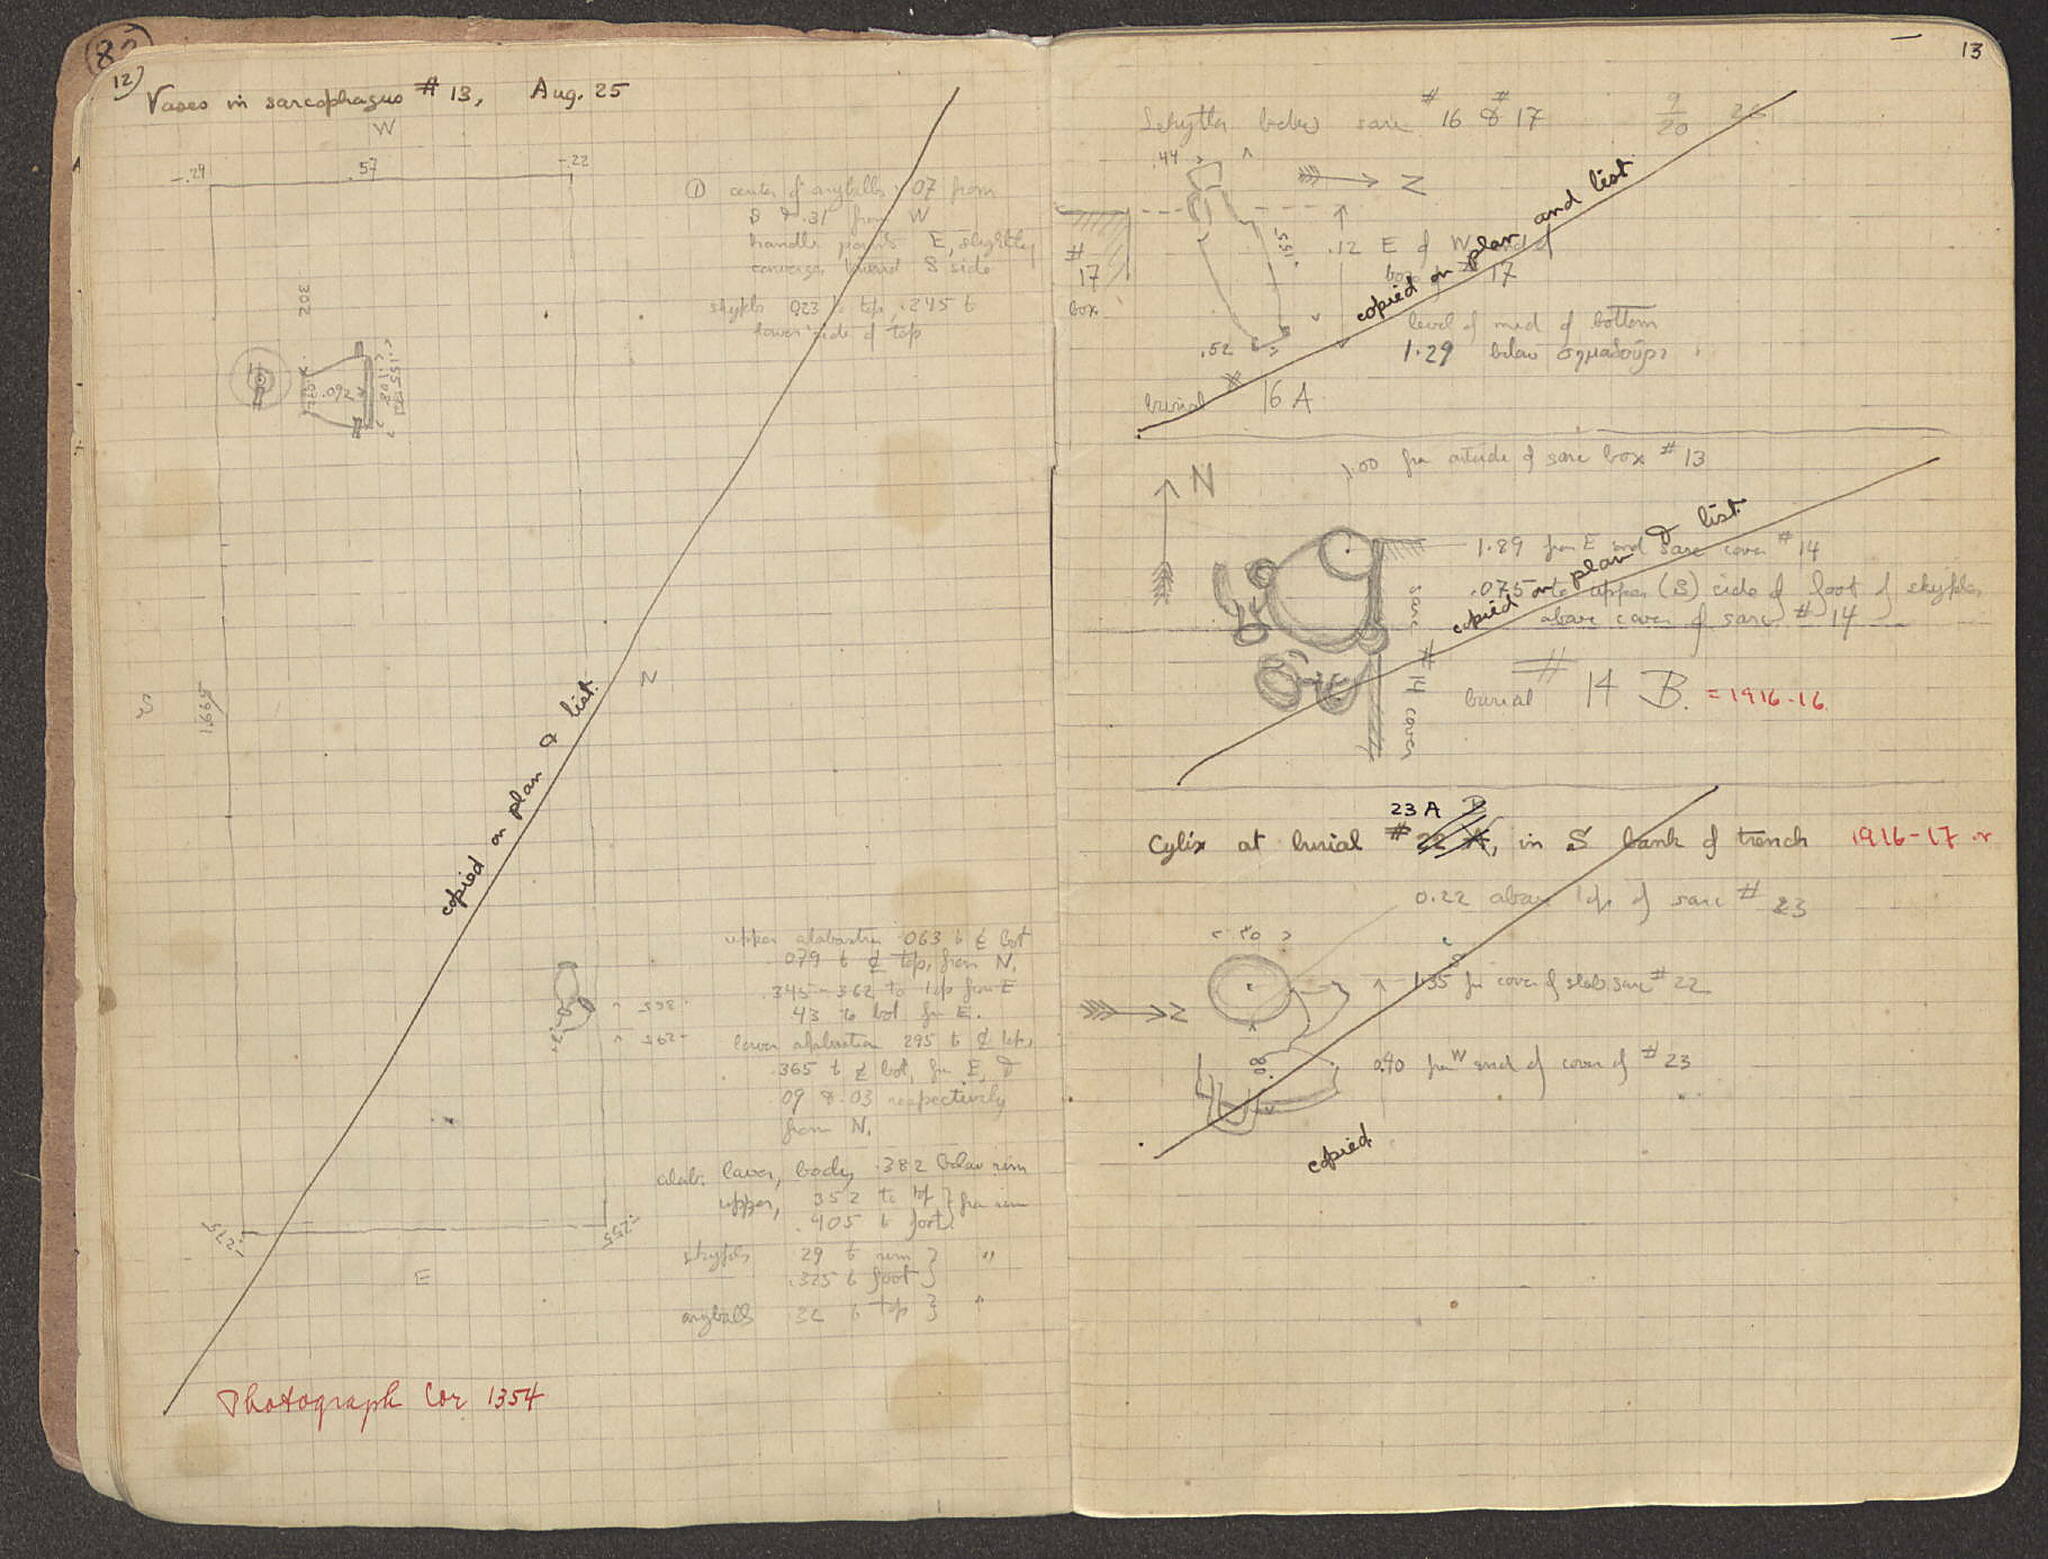 12)
Vases in sarcophagus # 13, Aug. 25
W
.57
-.22
① center of aryballos .07 from
S & .31 from W
handle points E, slightly
converges toward S side
skyphos .023 to top, .245 to
lower side of top
.302
.092
N
S
1.665
copied on plan & list.
upper alabastron .063 to ₵ bot
.079 to ₵ top, from N.
.345-.362 to top from E
.43 to bot fr E.
lower alabastron .295 to ₵ top,
.365 to ₵ bot, fr E, &
.09 & .03 respectively
from N.
alab. lower, body, .382 below rim
upper, .352 to top } fr rim
.405 to foot }
skyphos .29 to rim } "
.325 to foot }
aryballos 32 to top } "
.275
.255
E
Photograph Cor 1354
13
Lekythos below sarc # 16 & # 17
.44
N
.12 E of W end of
box of # 17
# 17 box
.155
level of mid of bottom
.52
1.29 below σημαδούρι
burial # 16 A
copied on plan and list.
1.00 fr outside of sarc box # 13
N
1.89 from E end sarc cover # 14
.075 to upper (S) side of foot of skyphos
above cover of sarc # 14
sarc # 14 cover
burial # 14 B. = 1916-16
copied on plan & list.
23 A
Cylix at burial # 22 A, in S bank of trench 1916-17
0.22 above top of sarc # 23
1.35 fr cover of slab sarc # 22
N
.08
0.40 fr W end of cover of # 23
copied